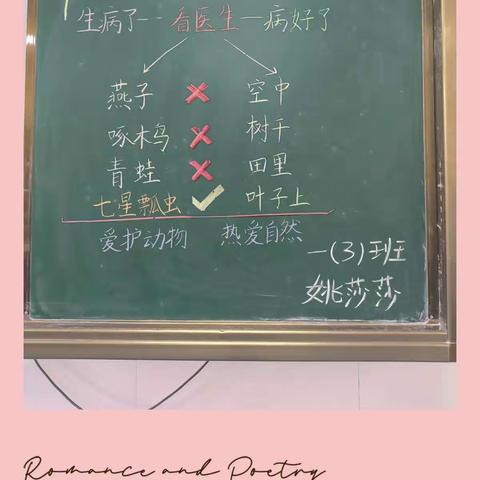 生病了--看医生—病好了
燕子 ✗ 空中
啄木鸟 ✗ 树干
青蛙 ✗ 田里
七星瓢虫 ✓ 叶子上
爱护动物 热爱自然
一(3)班
姚莎莎
Romance and Poetry